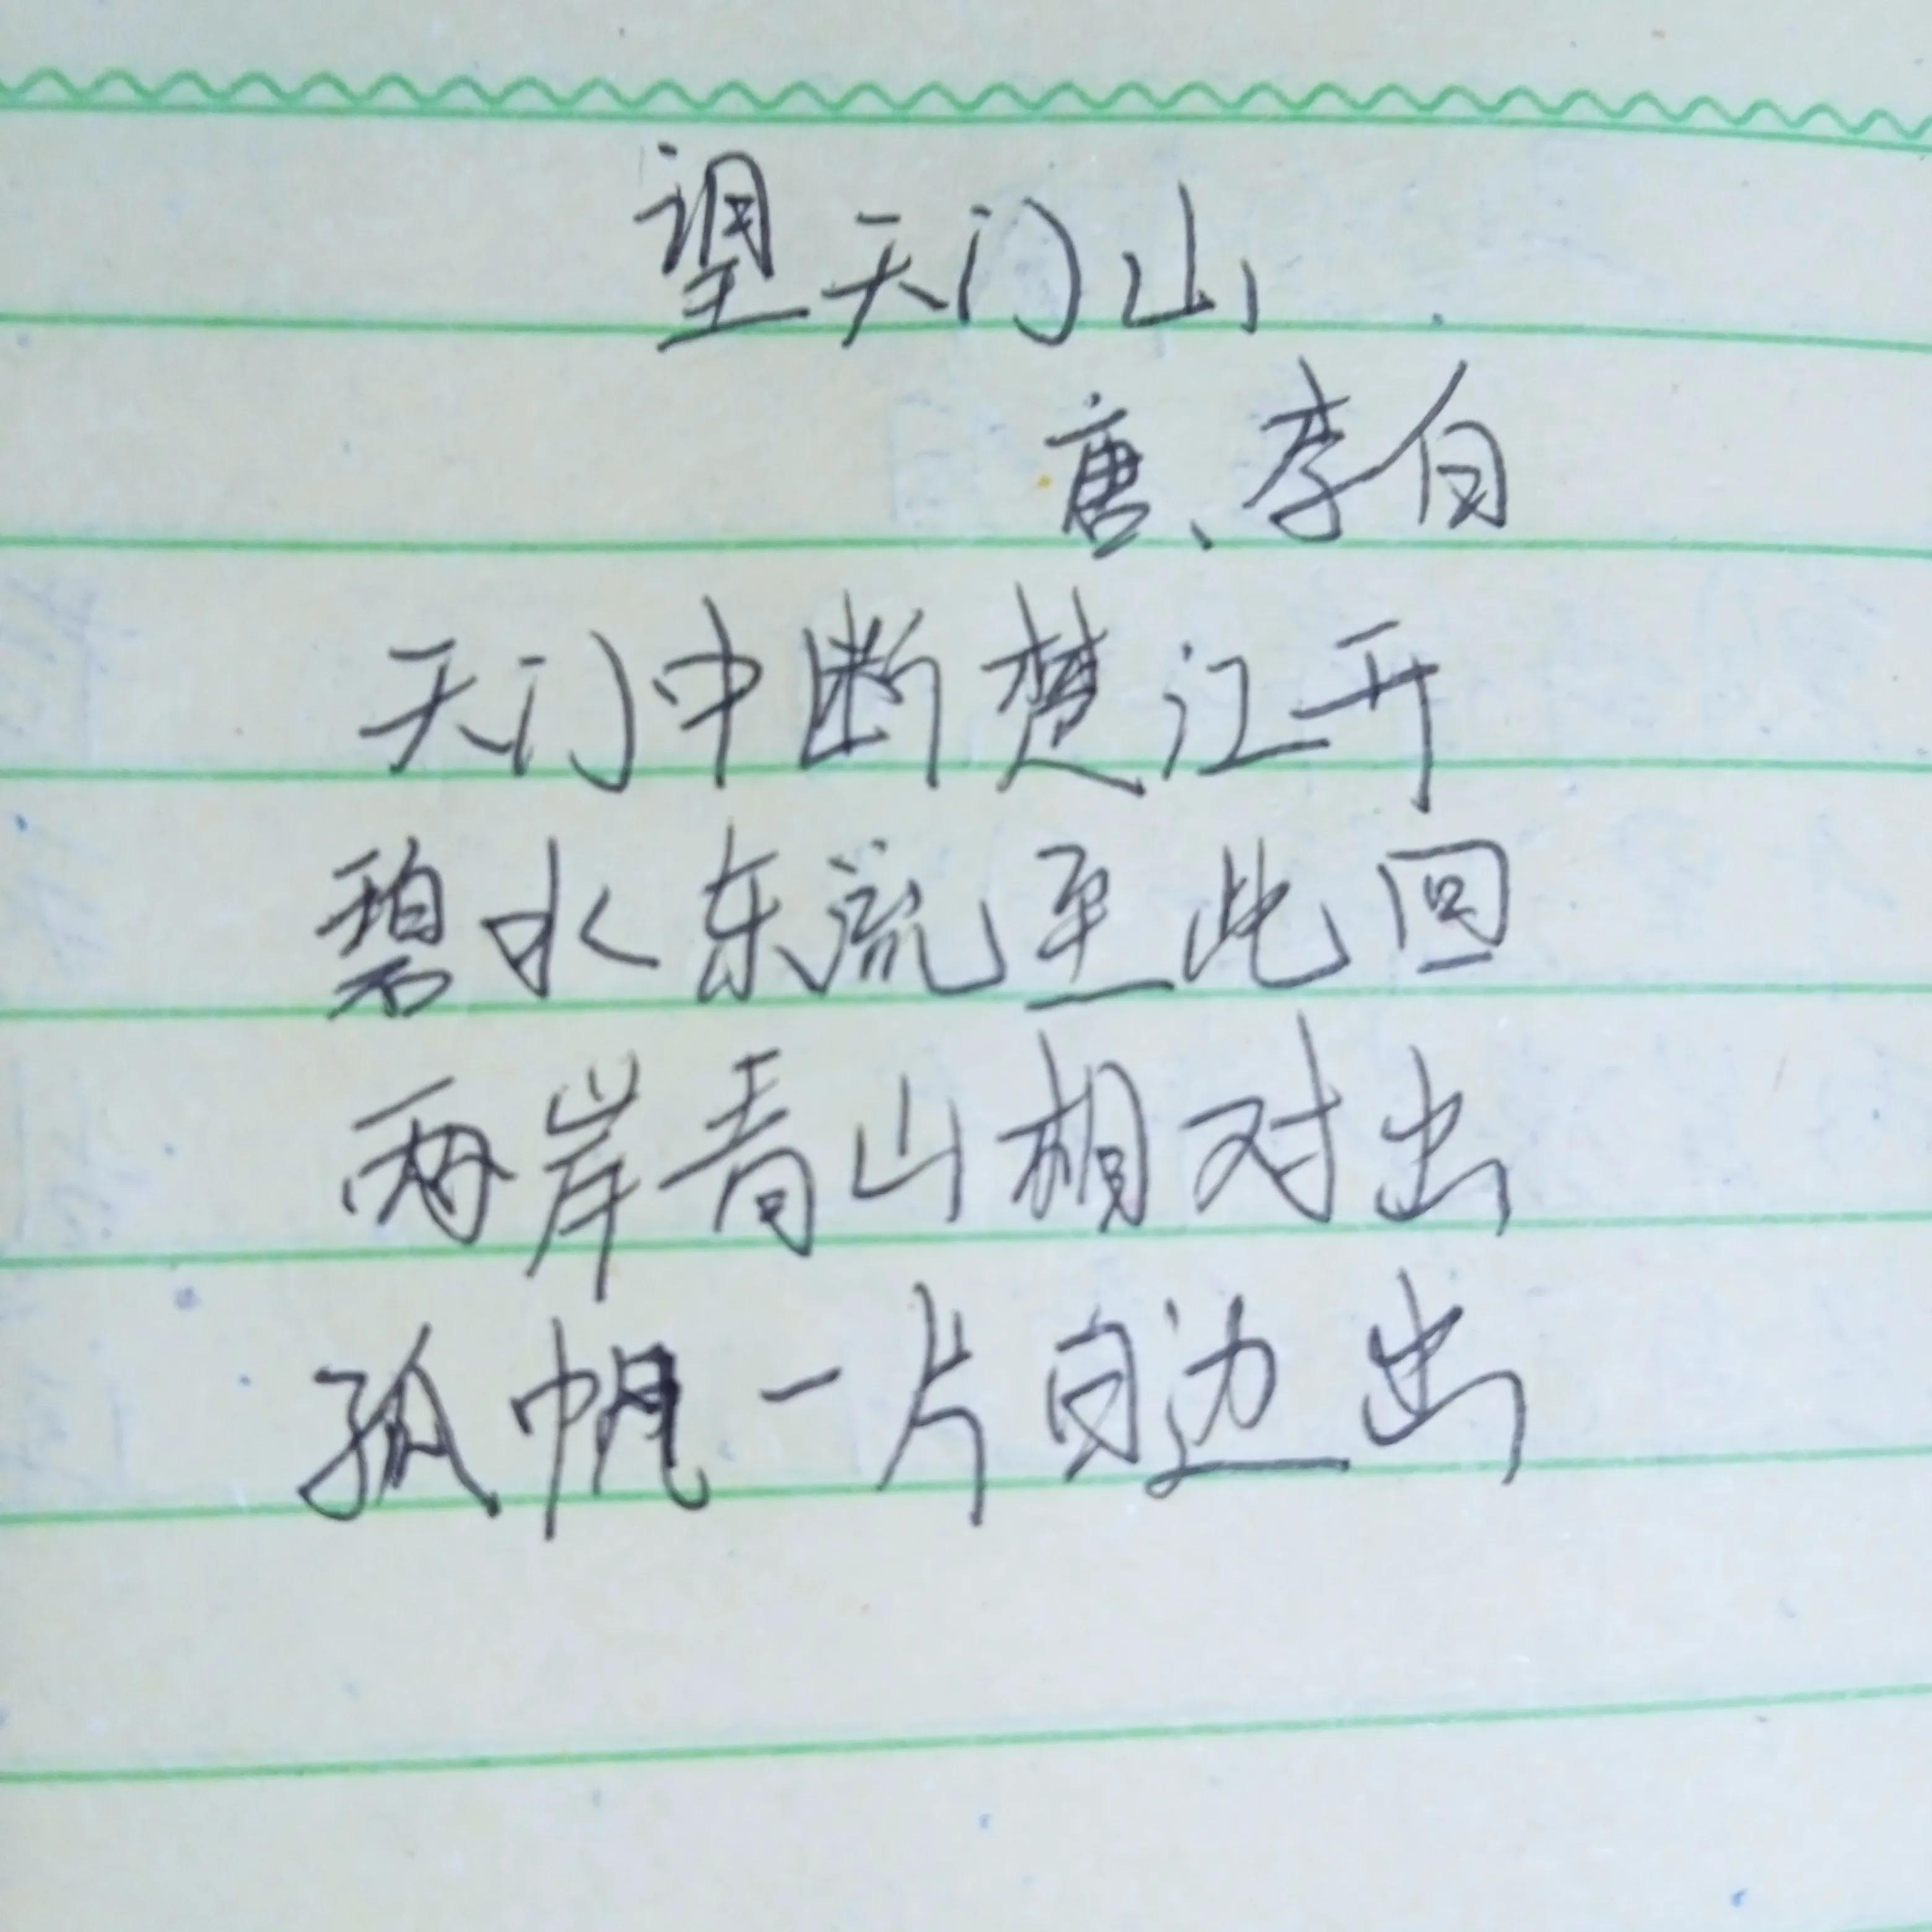 望天门山
唐、李白
天门中断楚江开
碧水东流至此回
两岸青山相对出
孤帆一片白边出